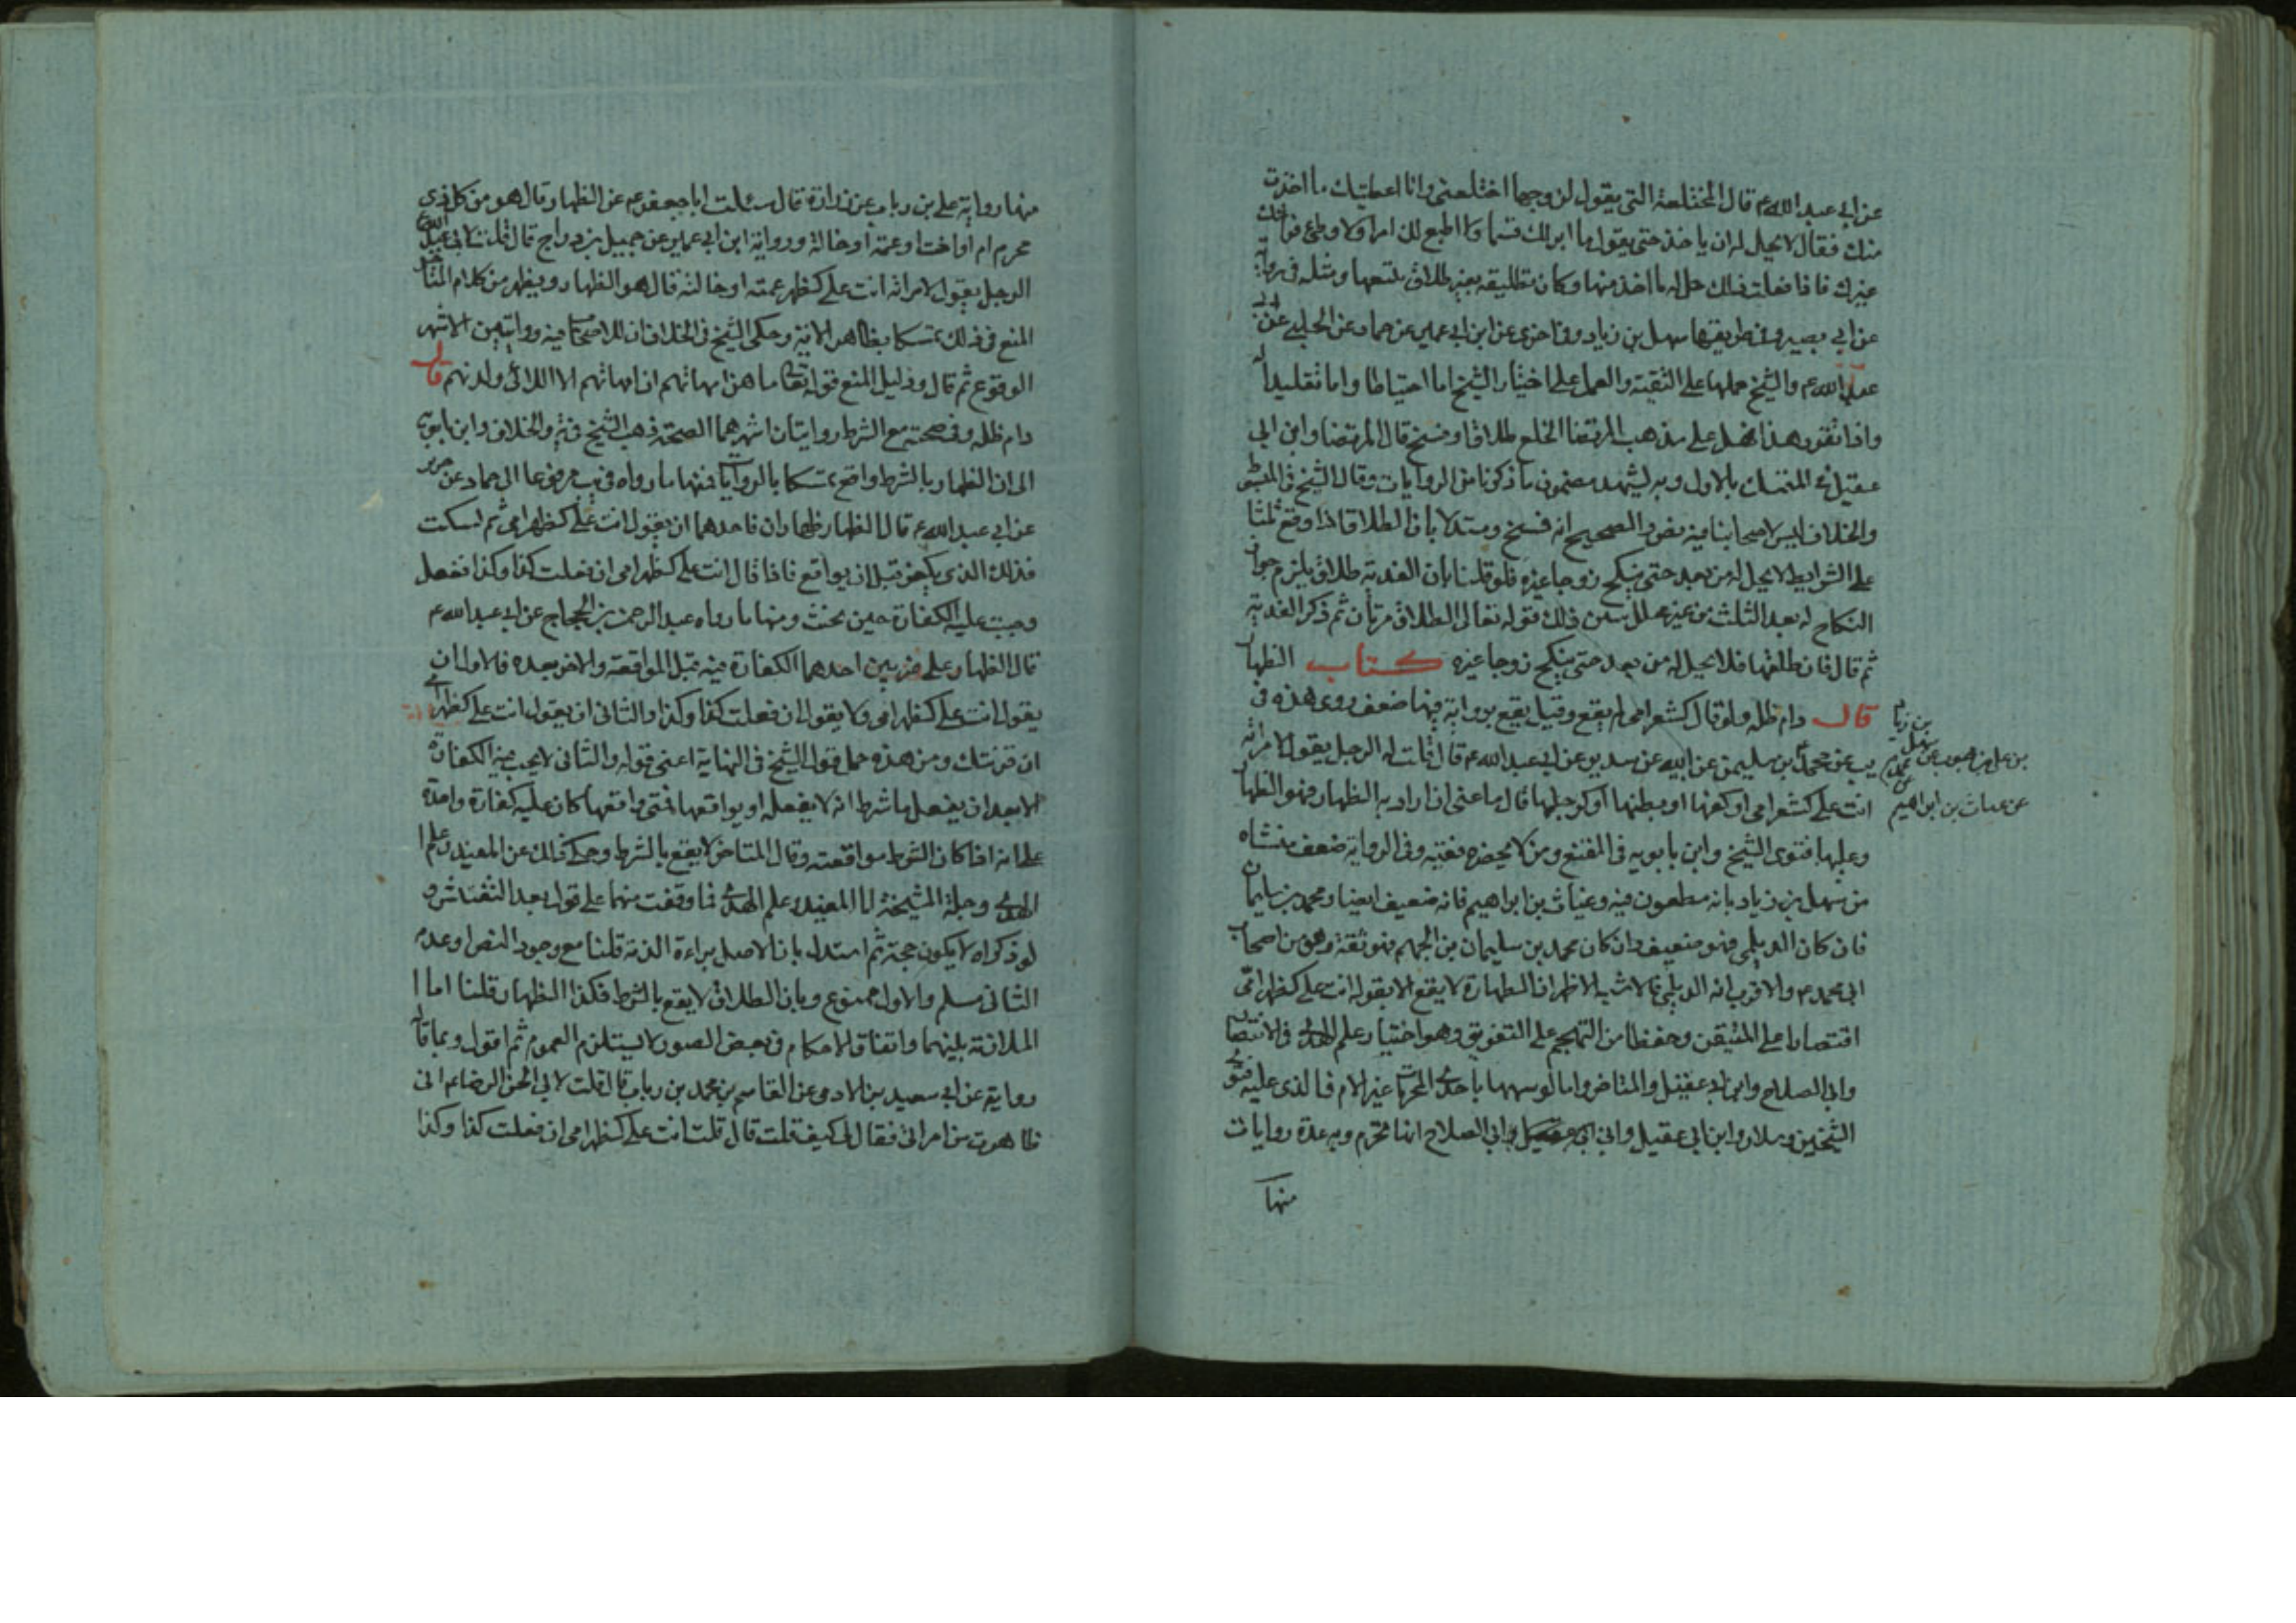 عن ابي عبد الله ع قال المختلعة التي يقول لزوجها اختلعني وانا اعطيك ما اخذت
منك فقال لا يحل له ان ياخذ حتى يقول ما ابر لك قسما ولا اطيع لك امرا ولاوطئ فراشك
غيرك فاذا فعلت ذلك حل له ما اخذ منها وكان تطليقه بغير طلاق يتبعها ومثله في رواية
عن ابي بصير وفي طريقها سهل بن زياد وفي اخرى عن ابن ابي عمير عن حماد عن الحلبي عن ابي
عبد الله ع والشيخ حملها على التقية والعمل على اختيار الشيخ اما احتياطا واما تقليدا له
واذا تقرر هذا فهل على مذهب المرتضى الخلع طلاق او فسخ قال المرتضى وابن ابي
عقيل المتمسك بالاول وبه يشهد مضمون ما ذكرنا من الروايات وقال الشيخ في المبسوط
والخلاف ليس لاصحابنا فيه نص والصحيح انه فسخ ومستدلا بان الطلاق اذا وقع ثلثا
على الشرايط لا يحل له من بعد حتى ينكح زوجا غيره فلو قلنا بان الفدية طلاق يلزم جواز
النكاح له بعد الثلث من غير محلل بين ذلك قوله تعالى الطلاق مرتان ثم ذكر الفدية
ثم قال فان طلقها فلا يحل له من بعد حتى ينكح زوجا غيره كتاب الظهار
قال دام ظله ولو قال كشعر امي لم يقع وقيل يقع برواية فيها ضعف روى هذه في
يب عن محمد بن سليمن عن ابيه عن سدير عن ابي عبد الله ع قال قلت له الرجل يقول لامراته
انت علي كشعر امي او كفها او بطنها او كرجلها قال ما عنى ان اراد به الظهار فهو الظهار
وعليها فتوى الشيخ وابن بابويه في المقنع ومن لا يحضره فقيه وفي الرواية ضعف منشاه
من سهل بن زياد بانه مطعون فيه وغياث بن ابراهيم فانه ضعيف ايضا ومحمد بن سليمان
فان كان الديلمي فهو ضعيف وان كان محمد بن سليمان بن الجهم فهو ثقة وهو من اصحاب
ابي محمد ع والاقرب انه الديلمي فالاشبه الاظهر ان الظهارة لا يقع الا بقوله انت علي كظهر امي
اقتصارا على المتيقن وحفظا من التهجم على التفريق وهو اختيار علم الهدى في الانتصار
وابي الصلاح وابن ابي عقيل والمتاخر واما لو شبهها باحدى المحرمات غير الام فالذي عليه فتوى
الشيخين وسلار وابن ابي عقيل وابي الصلاح انها محرم وبه عدة روايات
منها
بن علي بن محبوب عن سهل بن زياد
عن غياث بن ابراهيم
منها رواية علي بن رياب عن زرارة قال سئلت ابا جعفر ع عن الظهار قال هو من كل ذي
محرم ام او اخت او عمة او خالة ورواية ابن ابي عمير عن جميل بن دراج قال قلت لابي عبد الله
الرجل يقول لامراته انت علي كظهر عمته او خالته قال هو الظهار ويظهر من كلام المتاخر
المنع في ذلك تمسكا بظاهر الاية وحكى الشيخ في الخلاف ان للاصحاب فيه روايتين الاشهر
الوقوع ثم قال ودليل المنع قوله تعالى ما هن امهاتهم ان امهاتهم الا اللائي ولدنهم قال
دام ظله وفي صحته مع الشرط روايتان اشهرهما الصحة ذهب الشيخ في ية والخلاف وابن بابويه
الى ان الظهار بالشرط واقع تمسكا بالروايات فمنها ما رواه في يب مرفوعا الى حماد عن حريز
عن ابي عبد الله ع قال الظهار ظهاران فاحدهما ان يقول انت علي كظهر امي ثم يسكت
فذلك الذي يكفر قبل ان يواقع فاذا قال انت علي كظهر امي ان فعلت كذا وكذا ففعل
وجبت عليه الكفارة حين يحنث ومنها ما رواه عبد الرحمن بن الحجاج عن ابي عبد الله ع
قال الظهار على ضربين احدهما الكفارة فيه قبل المواقعة والاخر بعده فالاول ان
يقول انت علي كظهر امي ولا يقول ان فعلت كذا وكذا والثاني ان يقول انت علي كظهر امي
ان قربتك ومن هذه حمل قول الشيخ في النهاية اعني قوله والثاني لا يجب فيه الكفارة
الا بعد ان يفعل ما شرط انه لا يفعله او يواقعها فمتى واقعها كان عليه كفارة واحدة
علمانه اذا كان الشرط مواقعته وقال المتاخر لا يقع بالشرط وحكى ذلك عن المفيد وعلم
الهدى وجلة المشيخة اما المفيد وعلم الهدى فما وقفت منهما على قول بعد التفتيش و
لو ذكراه لا يكون حجة ثم استدل بان الاصل براءة الذمة قلنا مع وجود النص او عدمه
الثاني مسلم والاول ممنوع وبان الطلاق لا يقع بالشرط فكذا الظهار قلنا اما
الملازمة بينهما واتفاق الاحكام في بعض الصور لا يستلزم العموم ثم اقول وبما قال
رواية عن ابي سعيد بن الادمي عن القاسم بن محمد بن رباب قال قلت لابي الحسن الرضا ع اني
ظاهرت من امراتي فقال لي كيف قلت قال قلت انت علي كظهر امي ان فعلت كذا وكذا